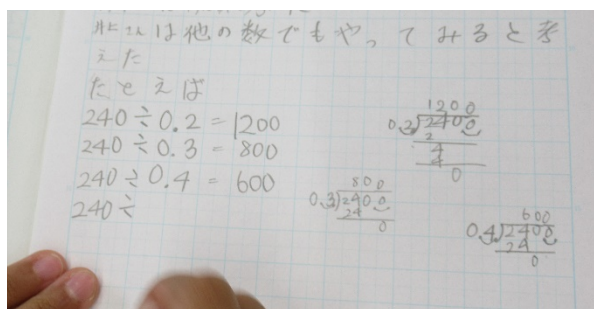 さんは他の数でもやってみると考
えた
たとえば
240÷0.2=1200
240÷0.3=800
240÷0.4=600
240÷
1200
0.2)2400
2
4
4
0
800
0.3)2400
24
0
600
0.4)2400
24
0